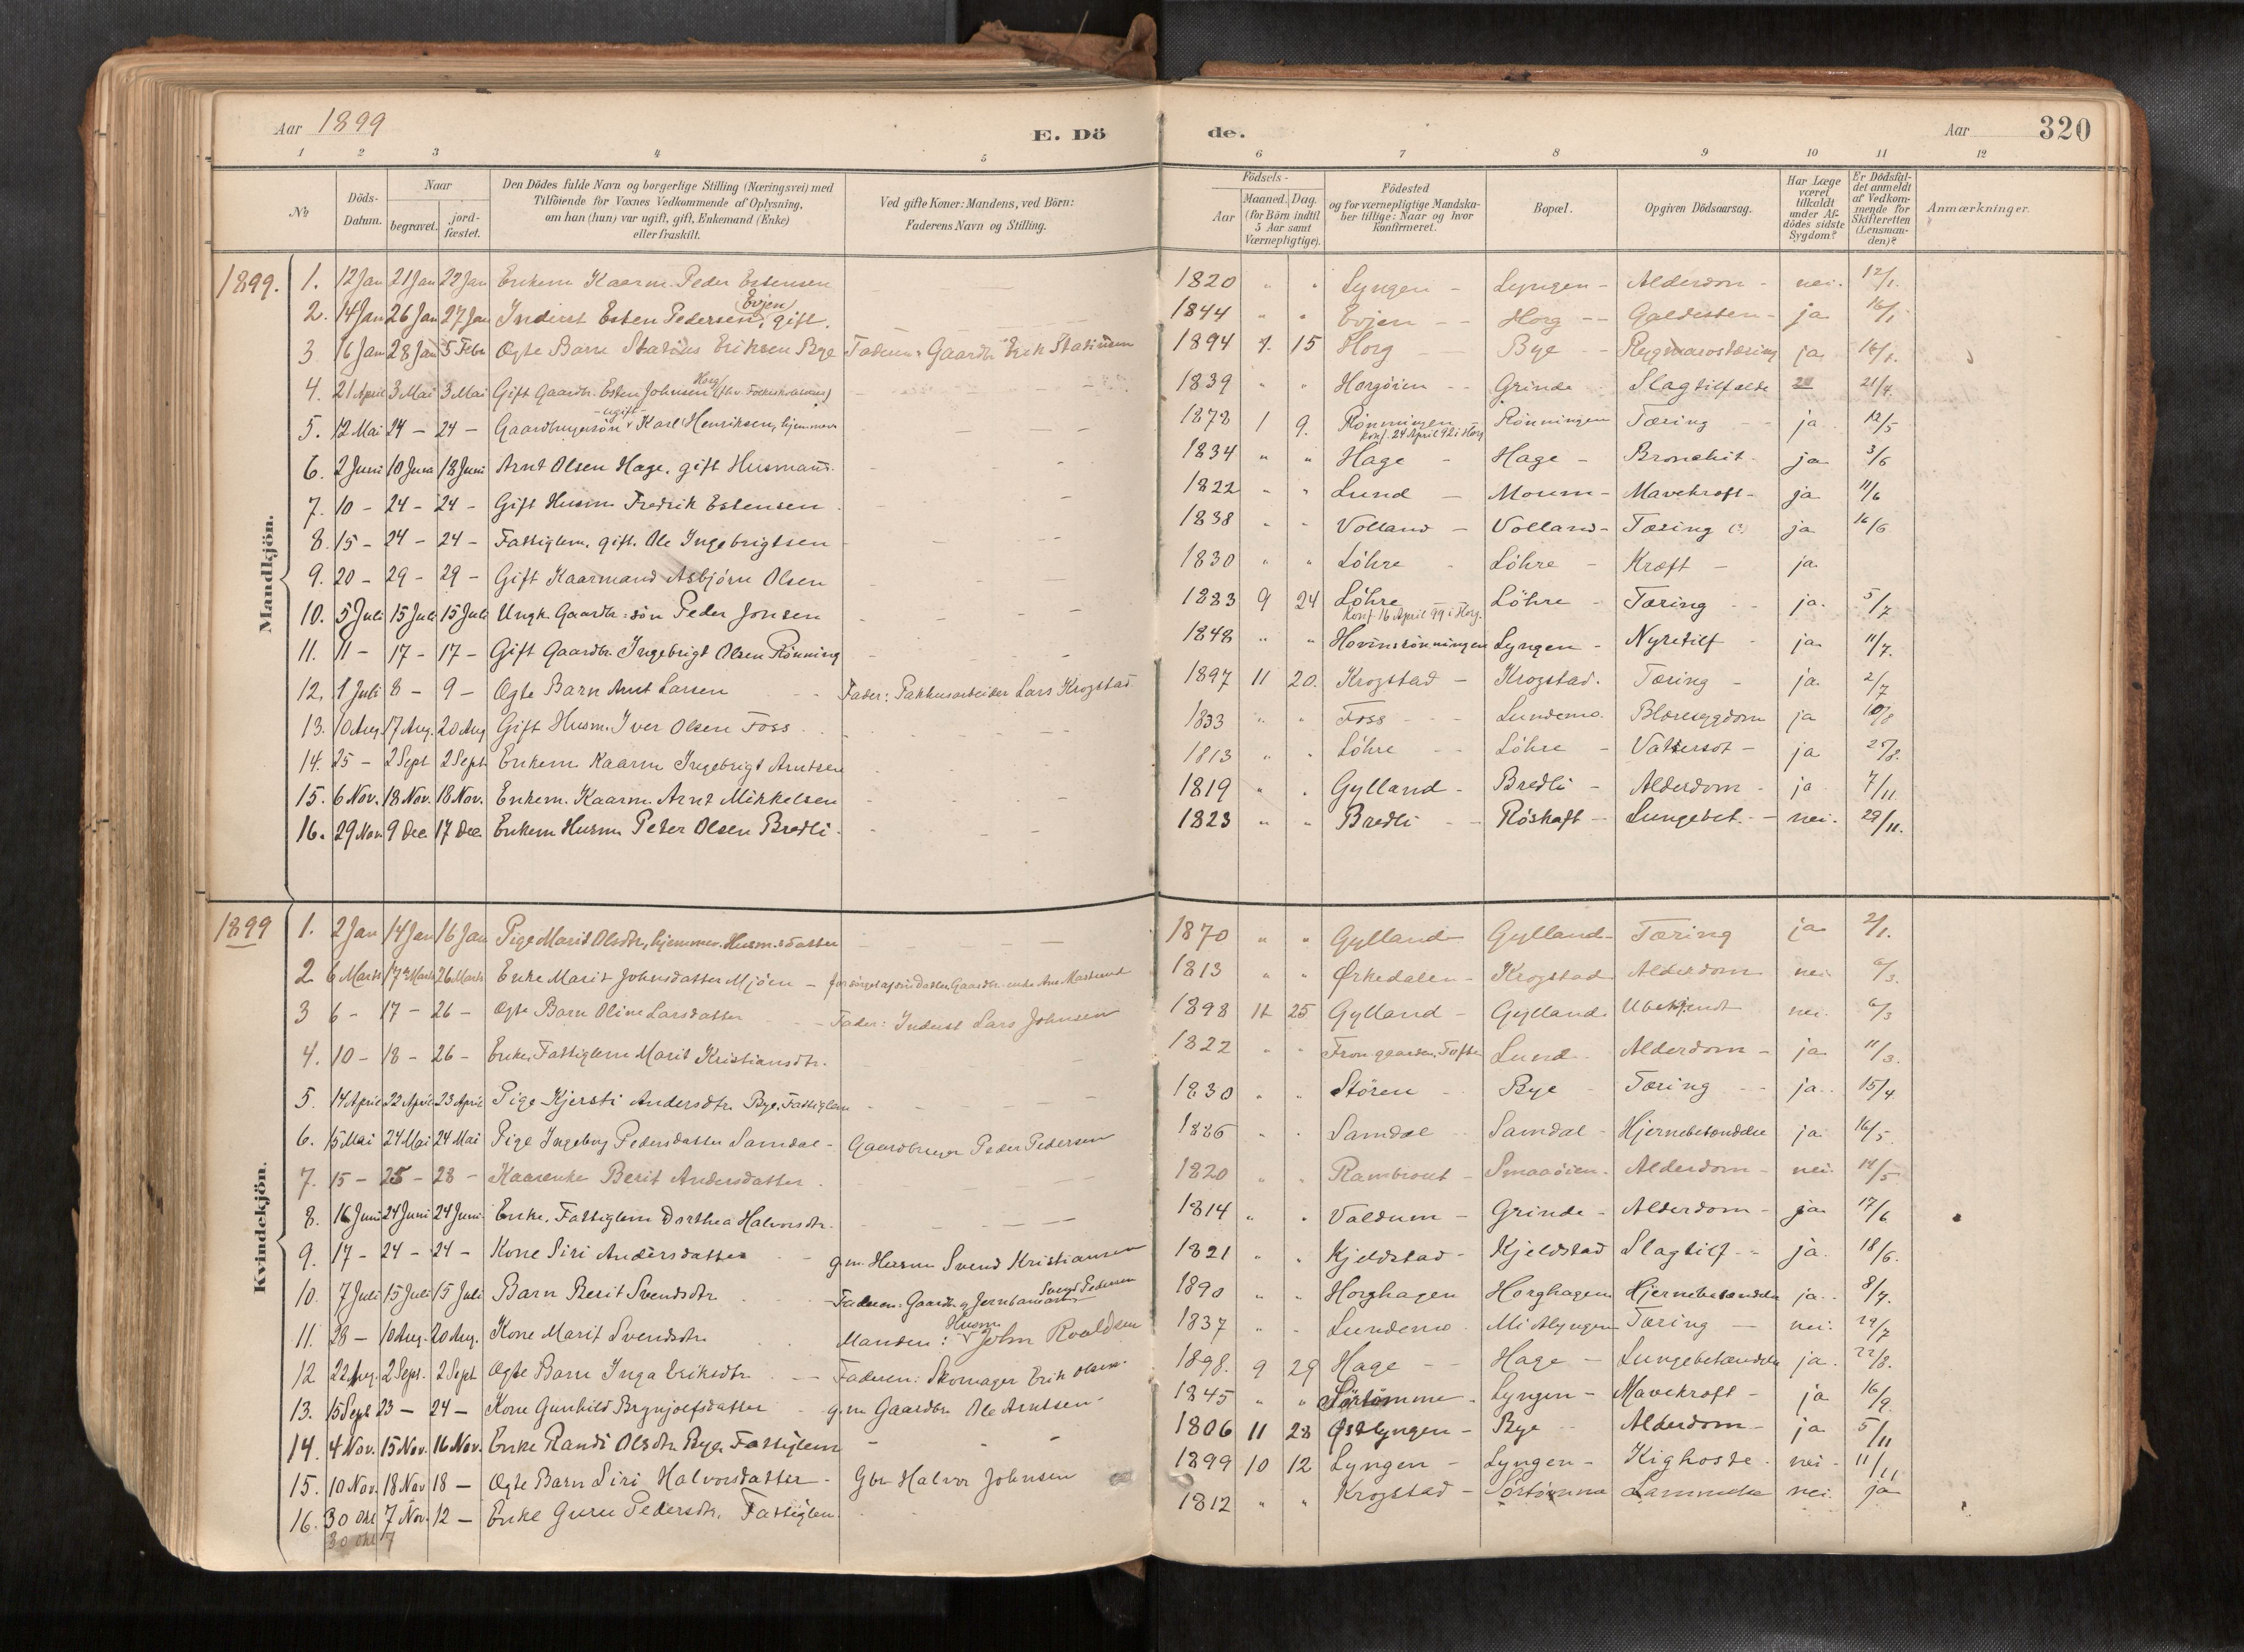 Aar 1899 E. Dö de. Aar 320
1 2 3 4 5 6 7 8 9 10 11 12
№ Döds-Datum. Naar begravet. jord-fæstet. Den Dödes fulde Navn og borgerlige Stilling (Næringsvei) med Tilföiende for Voxnes Vedkommende af Oplysning, om han (hun) var ugift, gift, Enkemand (Enke) eller fraskilt. Ved gifte Koner: Mandens, ved Börn: Faderens Navn og Stilling. Födsels- Aar Maaned. Dag. (for Börn indtil 5 Aar samt Værnepligtige). Födested og for værnepligtige Mandskaber tillige: Naar og hvor konfirmeret. Bopæl. Opgiven Dödsaarsag. Har Læge været tilkaldt under Afdödes sidste Sygdom? Er Dödsfaldet anmeldt af Vedkommende for Skifteretten (Lensmanden)? Anmærkninger.
Mandkjön.
1899. 1. 12 Jan 21 Jan 22 Jan Enkem Kaarm. Peder Estensen 1820 " " Lyngen - Lyngen - Alderdom - nei. 12/1.
2. 14 Jan 26 Jan 27 Jan Inderst Esten Pedersen, Evjen gift. 1844 " " Evjen - - Horg - - Galdesten - ja 16/1
3 16 Jan 28 Jan 5 Febr Ægte Barn Eriksen Bye Faderen: Gaardbr Erik 1894 7. 15 Horg Bye - Rygmarvstæring ja 16/1.
4. 21 April 3 Mai 3 Mai Gift Gaardbr. Esten Johnsen Horg 1839 " " Horgöien - - Grinde Slagtilfælde 21/4.
5. 12 Mai 24 - 24 - Gaardbrugersön ugift Karl Henriksen, hjemmev 1878 1 9. Rönningen - konf. 24 April 92 i Horg Rönningen Tæring - - ja 12/5
6. 2 Juni 10 Juni 18 Juni Arnt Olsen Hage, gift Husmand. 1834 " " Hage - Hage - Bronchit. ja 3/6
7. 10 - 24 - 24 - Gift Husm Fredrik Estensen 1822 - " Lund - Moum - Mavekræft - ja 11/6
8. 15 - 24 - 24 - Fattiglem, gift. Ole Ingebrigtsen 1838 " " Volland - Volland - Tæring (?) ja 16/6
9. 20 - 29 - 29 - Gift Kaarmand Asbjörn Olsen 1830 " " Löhre - Löhre - Kræft - ja
10. 5 Juli 15 Juli 15 Juli Ungk. Gaardbr:sön Peder Jonsen 1883 9 24 Löhre Konf 16 April 99 i Horg. Löhre - Tæring - - ja. 5/7
11. 11 - 17 - 17 - Gift Gaardbr. Ingebrigt Olsen Rönning 1848 " " Hovinsrönningen Lyngen - Nyretilf - ja 11/7.
12. 1 Juli 8 - 9 - Ægte Barn Arnt Larsen - - Fader: Pakhusarbeider Lars Krogstad 1897 11 20. Krogstad - Krogstad. Tæring - ja. 2/7
13. 10 Aug 17 Aug. 20 Aug Gift Husm. Iver Olsen Foss 1833 " " Foss - - Lundemo. Blæresygdom ja 10/8
14. 25 - 2 Sept 2 Sept Enkem Kaarm Ingebrigt Arntsen 1813 " " Löhre - - Löhre - Vattersot - ja 25/8.
15. 6 Nov. 18 Nov. 18 Nov. Enkem. Kaarm. Arnt Mikkelsen 1819 " " Gylland - Bredli - Alderdom - ja 7/11
16. 29 Nov 9 Dec 17 Dec. Enkem Husm Peter Olsen Bredli. 1823 " " Bredli - - Röskaft - Lungebet. - nei. 29/11.
Kvindekjön.
1899 1. 2 Jan 14 Jan 16 Jan Pige Marit Olsdtr, hjemmev. Husm.sdatter 1870 " " Gylland - Gylland - Tæring ja 2/1.
2 6 Marts 17 Marts 26 Marts Enke Marit Johnsdatter Mjöen - forsörget af sin Datter Gaardbr. enke 1813 " " Ørkedalen - Krogstad Alderdom nei 6/3.
3 6 - 17 - 26 - Ægte Barn Oline Larsdatter - - Fader: Inderst Lars Johnsen 1898 11 25 Gylland - Gylland. Ubekjendt nei. 6/3
4. 10 - 18 - 26 - Enke, Fattiglem Marit Kristiansdtr. 1822 " " Lund - Alderdom - ja 11/3.
5. 14 April 22 April 23 April Pige Kjersti Andersdtr. Bye, Fattiglem 1830 " " Stören - Bye - Tæring - - ja. 15/4
6. 15 Mai 24 Mai 24 Mai Pige Ingeborg Pedersdatter Samdal - Gaardbruger Peder Pedersen 1886 " " Samdal - Samdal - Hjernebetændelse ja 16/5.
7. 15 - 25 - 28 - Kaarenke Berit Andersdatter 1820 " " Smaaöien. Alderdom - nei.
8. 16 Juni 24 Juni 24 Juni. Enke, Fattiglem Dorthea Halvorsdtr. 1814 " " Valdum - Grinde - Alderdom - ja 17/6
9. 17 - 24 - 24 - Kone Siri Andersdatter - - g.m. Husm Svend Kristiansen 1821 " " Kjeldstad - Kjeldstad Slagtilf - - ja. 18/6.
10. 7 Juli 15 Juli 15 Juli Barn Berit Svendsdtr - - Faderen: Gaardbr og Jernbanearb Svend Pedersen 1890 " " Horghagen Horghagen Hjernebetændelse ja. 8/7.
11. 28 - 10 Aug. 20 Aug. Kone Marit Svendsdtr Manden: Husm John Roaldsen 1837 " " Lundemo. Midtlyngen Tæring - nei. 29/7
12 22 Aug. 2 Sept. 2 Sept Ægte Barn Inga Eriksdtr - - Faderen: Skomager Erik Olsen. 1898. 9 29 Hage - - Hage - Lungebetændelse ja. 22/8.
13. 15 Sept 23 - 24 - Kone Gunhild Brynjolfsdatter - g.m Gaardbr. Ole Arntsen 1845 " " Sörtömme - Lyngen - Mavekræft - ja 16/9.
14. 4 Nov. 15 Nov. 16 Nov. Enke Randi Olsdtr Bye, Fattiglem - - - 1806 11 28 Østlyngen - Bye - Alderdom - ja 5/11
15. 10 Nov. 18 Nov 18 - Ægte Barn Siri Halvorsdatter - Gbr Halvor Johnsen 1899 10 12 Lyngen - Lyngen - Kighoste - nei - 11/11
16. 30 Okt 7 Nov. 12 - Enke Guru Pedersdtr. Fattiglem 1812 " " Krogstad - Sörtömme nei. ja
30 Okt 7